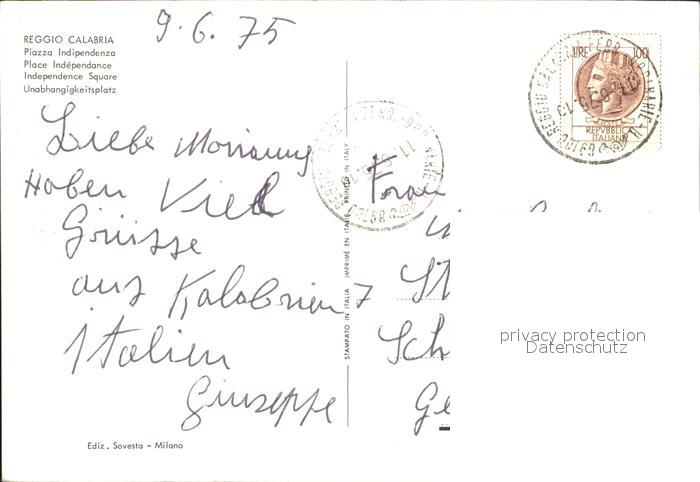 9.6.75
REGGIO CALABRIA
Piazza Indipendenza
Place Indépendance
Independence Square
Unabhangigkeitsplatz
LIRE 100
REPVBBLICA
ITALIANA
Liebe
Haben Viel
Grüsse
aus Kalabrien
italien
Giuseppe
Ediz. Sovesta - Milano
STAMPATO IN ITALIA IMPRIMÉ EN ITALIE PRINTED IN ITALY
Frau
St
Sch
Ge
privacy protection
Datenschutz